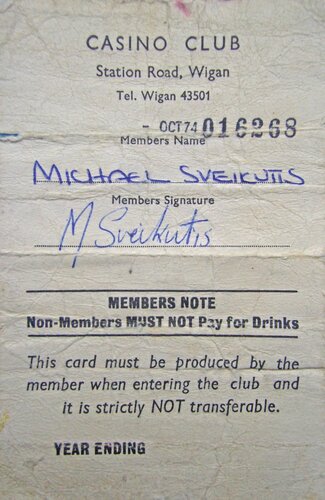 CASINO CLUB
Station Road, Wigan
Tel. Wigan 43501
- OCT 74 016268
Members Name
MICHAEL SVEIKUTIS
Members Signature
M Sveikutis
MEMBERS NOTE
Non-Members MUST NOT Pay for Drinks
This card must be produced by the
member when entering the club and
it is strictly NOT transferable.
YEAR ENDING